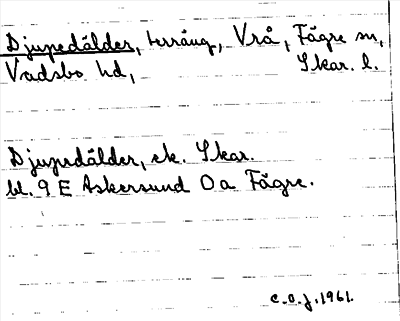 Djupedälder, terräng, Vrå, Fägre sn,
Vadsbo hd, Skar. l.
Djupedälder, ek. Skar.
bl. 9 E Askersund Da Fägre.
C.O.J. 1961.